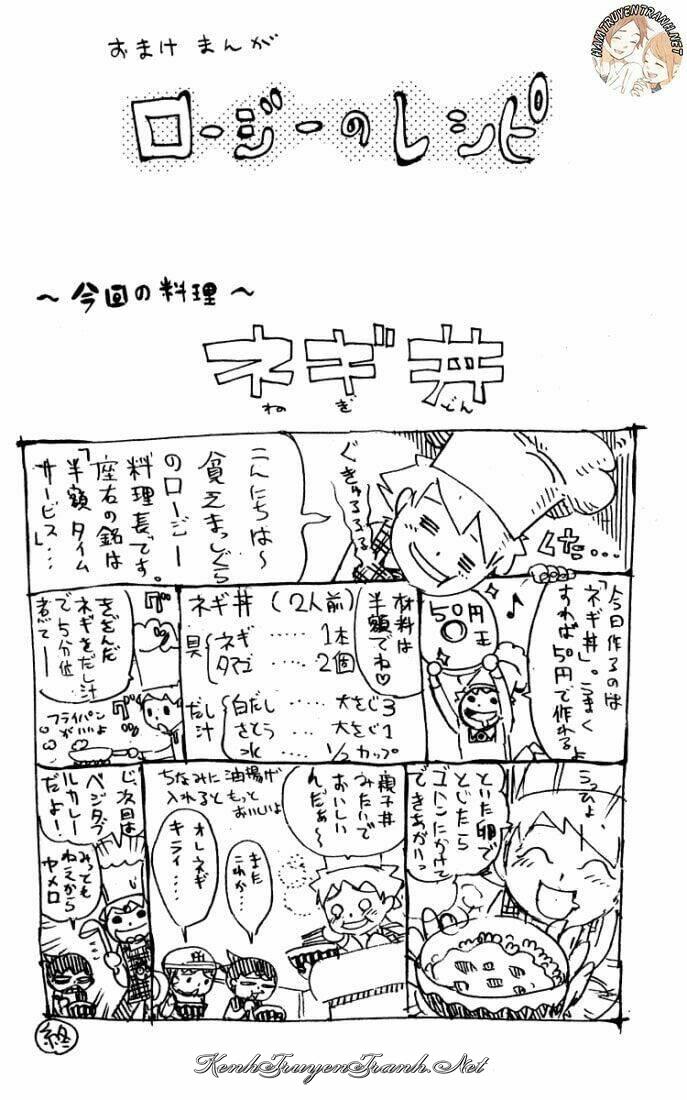 HAMTRUYENTRANH.NET
おまけまんが
ロージーのレシピ
～今回の料理～
ネギ丼
ねぎどん
ぐきゅるるるる
くた…
こんにちは～
貧乏まっしぐら
のロージー
料理長です。
座右の銘は
「半額タイム
サービス」…
今日作るのは
「ネギ丼」。うまく
すれば50円で作れるよ
うっひょ、
50円
玉
材料は
半額でね♡
ネギ丼（2人前）
具 ネギ ..... 1本
タマゴ ..... 2個
だし汁 白だし ..... 大さじ3
さとう ..... 大さじ1
水 ..... 1/2カップ
きざんだ
ネギをだし汁
で5分位
煮てー
フライパン
がいいよ
といた卵で
とじたら
ゴハンにかけて
できあがりっ
親子丼
みたいで
おいしい
んだぁ～
ちなみに油揚げ
入れるともっと
おいしいよ
また
これか…
オレネギ
キライ…
じゃ次回は
ベジタブ
ルカレー
だよ！
みっとも
ねぇから
ヤメロ
終
KenhTruyenTranh.Net